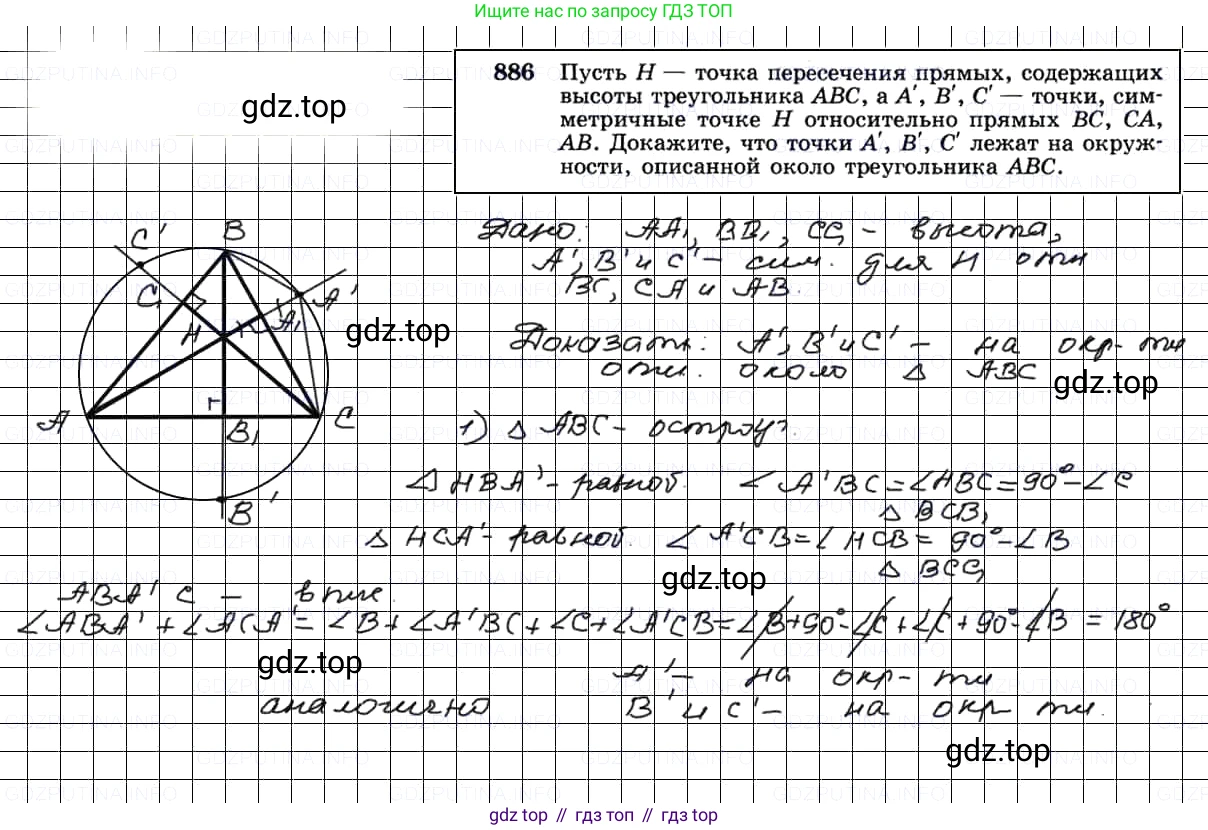 Ищите нас по запросу ГДЗ ТОП
886 Пусть H — точка пересечения прямых, содержащих
высоты треугольника ABC, а A', B', C' — точки, сим-
метричные точке H относительно прямых BC, CA,
AB. Докажите, что точки A', B', C' лежат на окруж-
ности, описанной около треугольника ABC.
gdz.top
Дано: AA₁, BB₁, CC₁ - высота,
A', B' и C' - сим. для H отн
BC, CA и AB.
Доказать: A', B' и C' - на окр-ти
опи. около Δ ABC
gdz.top
gdz.top
C'
B
C₁
A'
H
A₁
A
B₁
C
B'
1) Δ ABC - остроуг.
Δ HBA' - равноб. ∠A'BC = ∠HBC = 90° - ∠C
Δ BCB₁
Δ HCA' - равноб. ∠A'CB = ∠HCB = 90° - ∠B
Δ BCC₁
gdz.top
ABA'C - впис.
∠ABA' + ∠ACA' = ∠B + ∠A'BC + ∠C + ∠A'CB = ∠B + 90° - ∠C + ∠C + 90° - ∠B = 180°
gdz.top
A' - на окр-ти
аналогично B' и C' - на окр-ти.
gdz.top
gdz top // гдз топ // gdz top